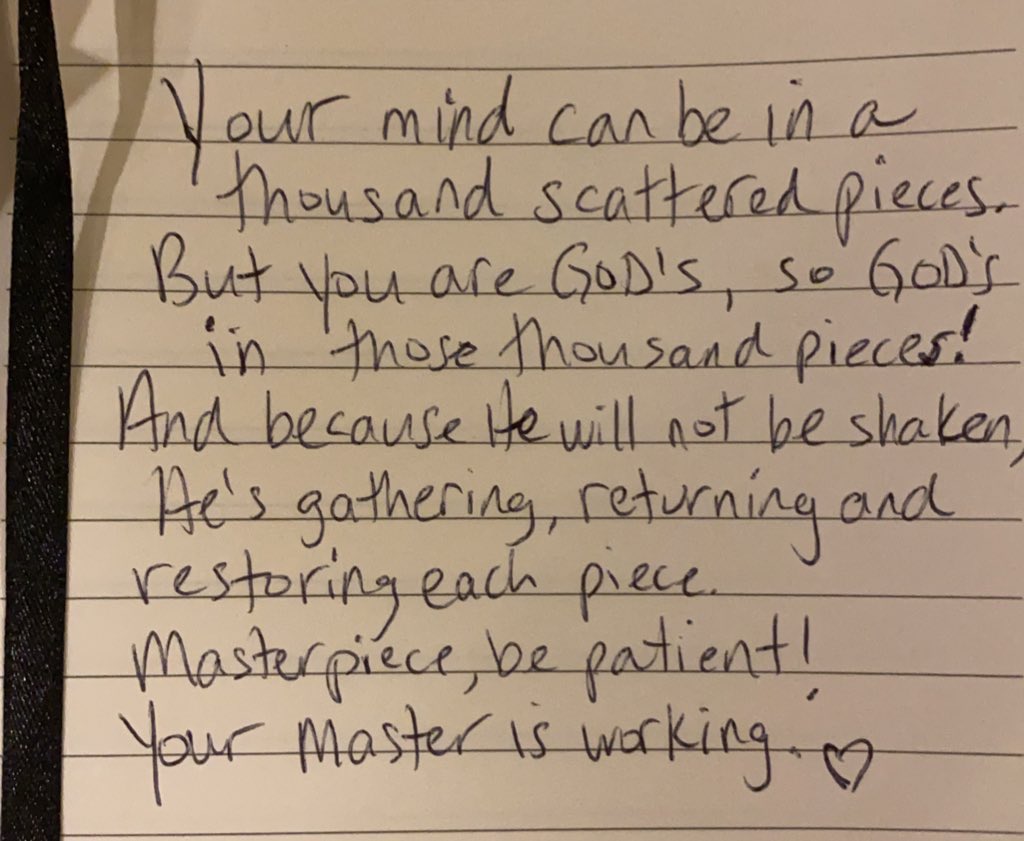 Your mind can be in a
thousand scattered pieces.
But you are GOD's, so GOD's
in those thousand pieces!
And because He will not be shaken,
He's gathering, returning and
restoring each piece.
Masterpiece, be patient!
Your Master is working. ♡